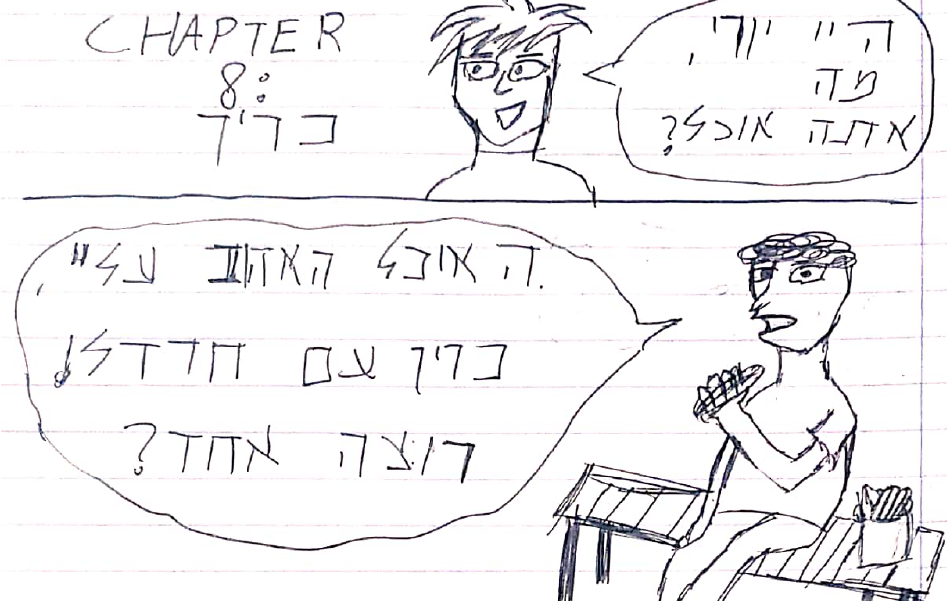 CHAPTER
8:
כריך
היי יודי,
מה
אתה אוכל?
האוכל האהוב עליי,
כריך עם חרדל!
רוצה אחד?